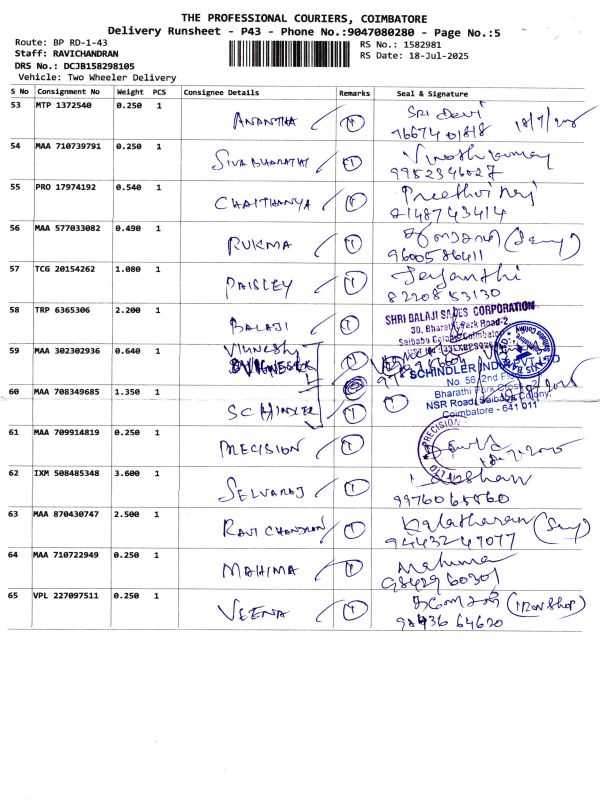 THE PROFESSIONAL COURIERS, COIMBATORE
Delivery Runsheet - P43 - Phone No.:9047080280 - Page No.:5
Route: BP RD-1-43
RS No.: 1582981
Staff: RAVICHANDRAN
RS Date: 18-Jul-2025
DRS No.: DCJB158298105
Vehicle: Two Wheeler Delivery
S No Consignment No Weight PCS Consignee Details Remarks Seal & Signature
53 MTP 1372540 0.250 1 ANANTHA 1 SRI Devi
76674 01818
54 MAA 710739791 0.250 1 SIVABHARATHI 1
9952346027
55 PRO 17974192 0.540 1 CHAITHANYA 1
8148743414
56 MAA 577033082 0.490 1 RUKMA 1
9600586411
57 TCG 20154262 1.080 1 PAISLEY 1 Jeyanthi
82208 53130
58 TRP 6365306 2.200 1 BALAJI 1 SHRI BALAJI SALES CORPORATION
38, Bharathi Park Road-2,
Saibaba Colony, Coimbatore
59 MAA 302302936 0.640 1 VIGNESH
SCHINDLER INDIA PVT LTD
No. 56, 2nd
60 MAA 708349685 1.350 1 SCHINDLER 1
Bharathi Park Cross-2,
NSR Road, Saibaba Colony,
Coimbatore - 641 011
61 MAA 709914819 0.250 1 PRECISION 1 PRECISION
62 IXM 508485348 3.600 1 SELVARAJ 1
9976065860
63 MAA 870430747 2.500 1 RAVI CHANDRAN 1
94432 47077
64 MAA 710722949 0.250 1 MAHIMA 1 Mahima
9842960301
65 VPL 227097511 0.250 1 VEENA 1 (Iron Shop)
98436 64620